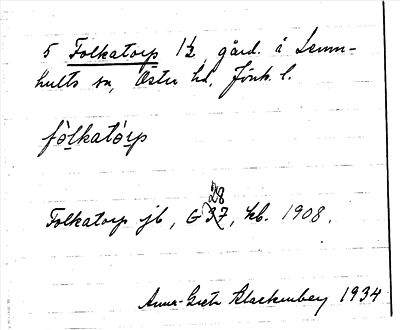 5 Folkatorp 1/2 gård. å Lemn-
hults sn, Östra hd, Jönk. l.
fòlkató̀rp
Folkatorp jb, G 37, 28 kb. 1908.
Anna-Greta Blackenberg 1934